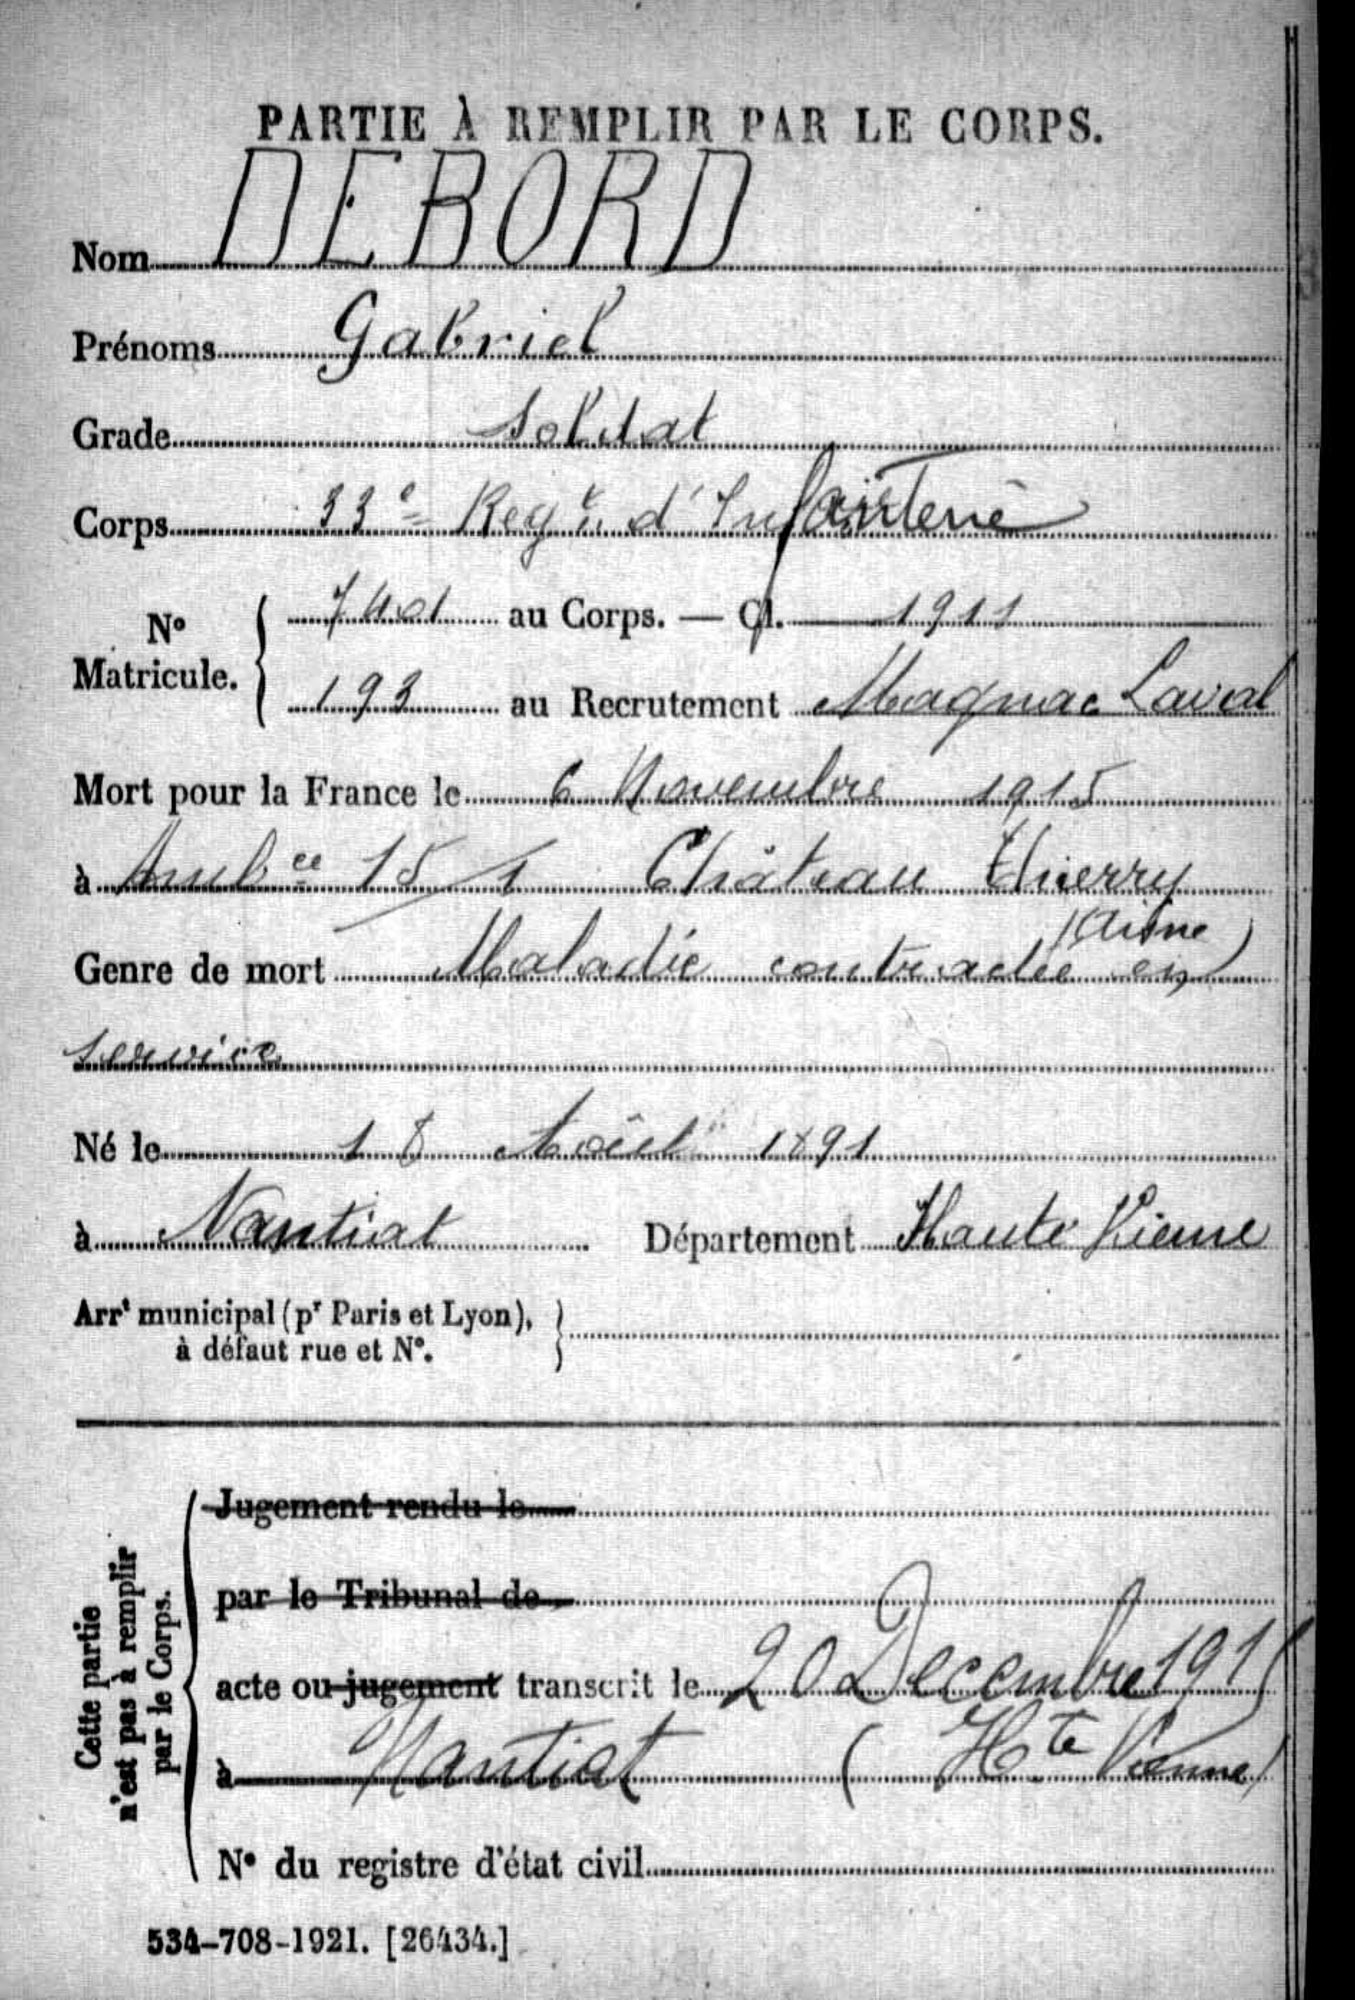 PARTIE À REMPLIR PAR LE CORPS.
Nom DEBORD
Prénoms Gabriel
Grade Soldat
Corps 33e Regt d'Infanterie
No Matricule. { 7401 au Corps. — Cl. 1911
193 au Recrutement Magnac Laval
Mort pour la France le 6 Novembre 1915
à Ambce 15/1 Château Thierry
(Aisne)
Genre de mort Maladie contractée en
service
Né le 18 Août 1891
à Nantiat Département Haute Vienne
Arrt municipal (pr Paris et Lyon), }
à défaut rue et No.
Cette partie
n'est pas à remplir
par le Corps.
Jugement rendu le
par le Tribunal de
acte ou jugement transcrit le 20 Decembre 1915
à Nantiat (Hte Vienne)
No du registre d'état civil
534-708-1921. [26434.]